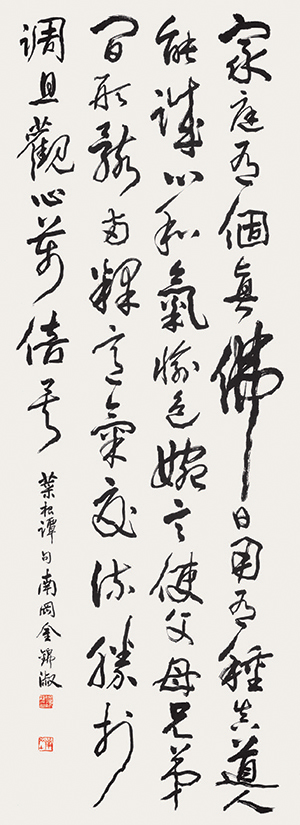 家庭有個眞佛日用有種眞道人
能誠心和氣愉色婉言使父母兄弟
間形骸兩釋意氣交流勝於
調息觀心萬倍矣
菜根譚句南岡金錦淑